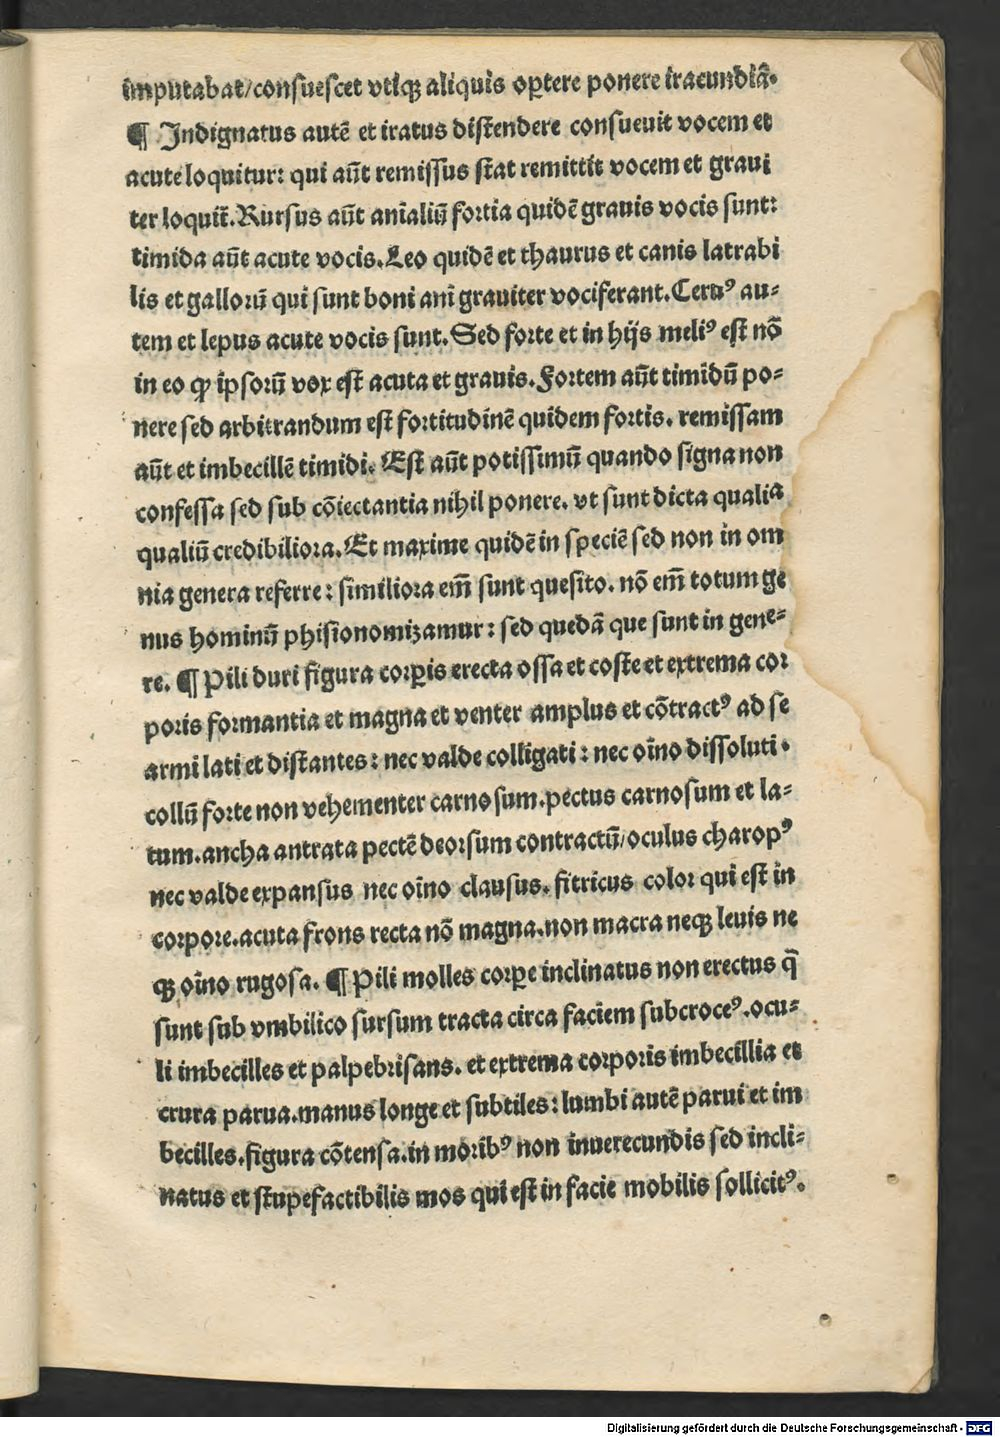 imputabat/consuescet vtiqȝ aliquis oꝑtere ponere iracundiā.
¶ Indignatus autē et iratus distendere consueuit vocem et
acute loquitur: qui aūt remissus stat remittit vocem et graui
ter loquit̄. Rursus aūt anīaliū fortia quidē grauis vocis sunt:
timida aūt acute vocis. Leo quidē et thaurus et canis latrabi
lis et gallorū qui sunt boni anī grauiter vociferant. Ceruꝰ au⸗
tem et lepus acute vocis sunt. Sed forte et in hijs meliꝰ est nō
in eo ꝙ ipsorū vox est acuta et grauis. Fortem aūt timidū po⸗
nere sed arbitrandum est fortitudinē quidem fortis. remissam
aūt et imbecillē timidi. Est aūt potissimū quando signa non
confessa sed sub cōiectantia nihil ponere. vt sunt dicta qualia
qualiū credibiliora. Et maxime quidē in speciē sed non in om
nia genera referre: similiora em̄ sunt quesito. nō em̄ totum ge
nus hominū phisionomizamur: sed quedā que sunt in gene⸗
re. ¶ Pili duri figura corꝑis erecta ossa et coste et extrema cor
poris formantia et magna et venter amplus et cōtractꝰ ad se
armi lati et distantes: nec valde colligati: nec oīno dissoluti.
collū forte non vehementer carnosum. pectus carnosum et la⸗
tum. ancha antrata pectē deorsum contractū/oculus charopꝰ
nec valde expansus nec oīno clausus. fitricus color qui est in
corpore. acuta frons recta nō magna. non macra neqȝ leuis ne
qȝ oīno rugosa. ¶ Pili molles corꝑe inclinatus non erectus q̄
sunt sub vmbilico sursum tracta circa faciem subcroceꝰ. ocu⸗
li imbecilles et palpebrisans. et extrema corporis imbecillia et
crura parua. manus longe et subtiles: lumbi autē parui et im
becilles. figura cōtensa. in moribꝰ non inuerecundis sed incli⸗
natus et stupefactibilis mos qui est in facie mobilis sollicitꝰ.
Digitalisierung gefördert durch die Deutsche Forschungsgemeinschaft - DFG